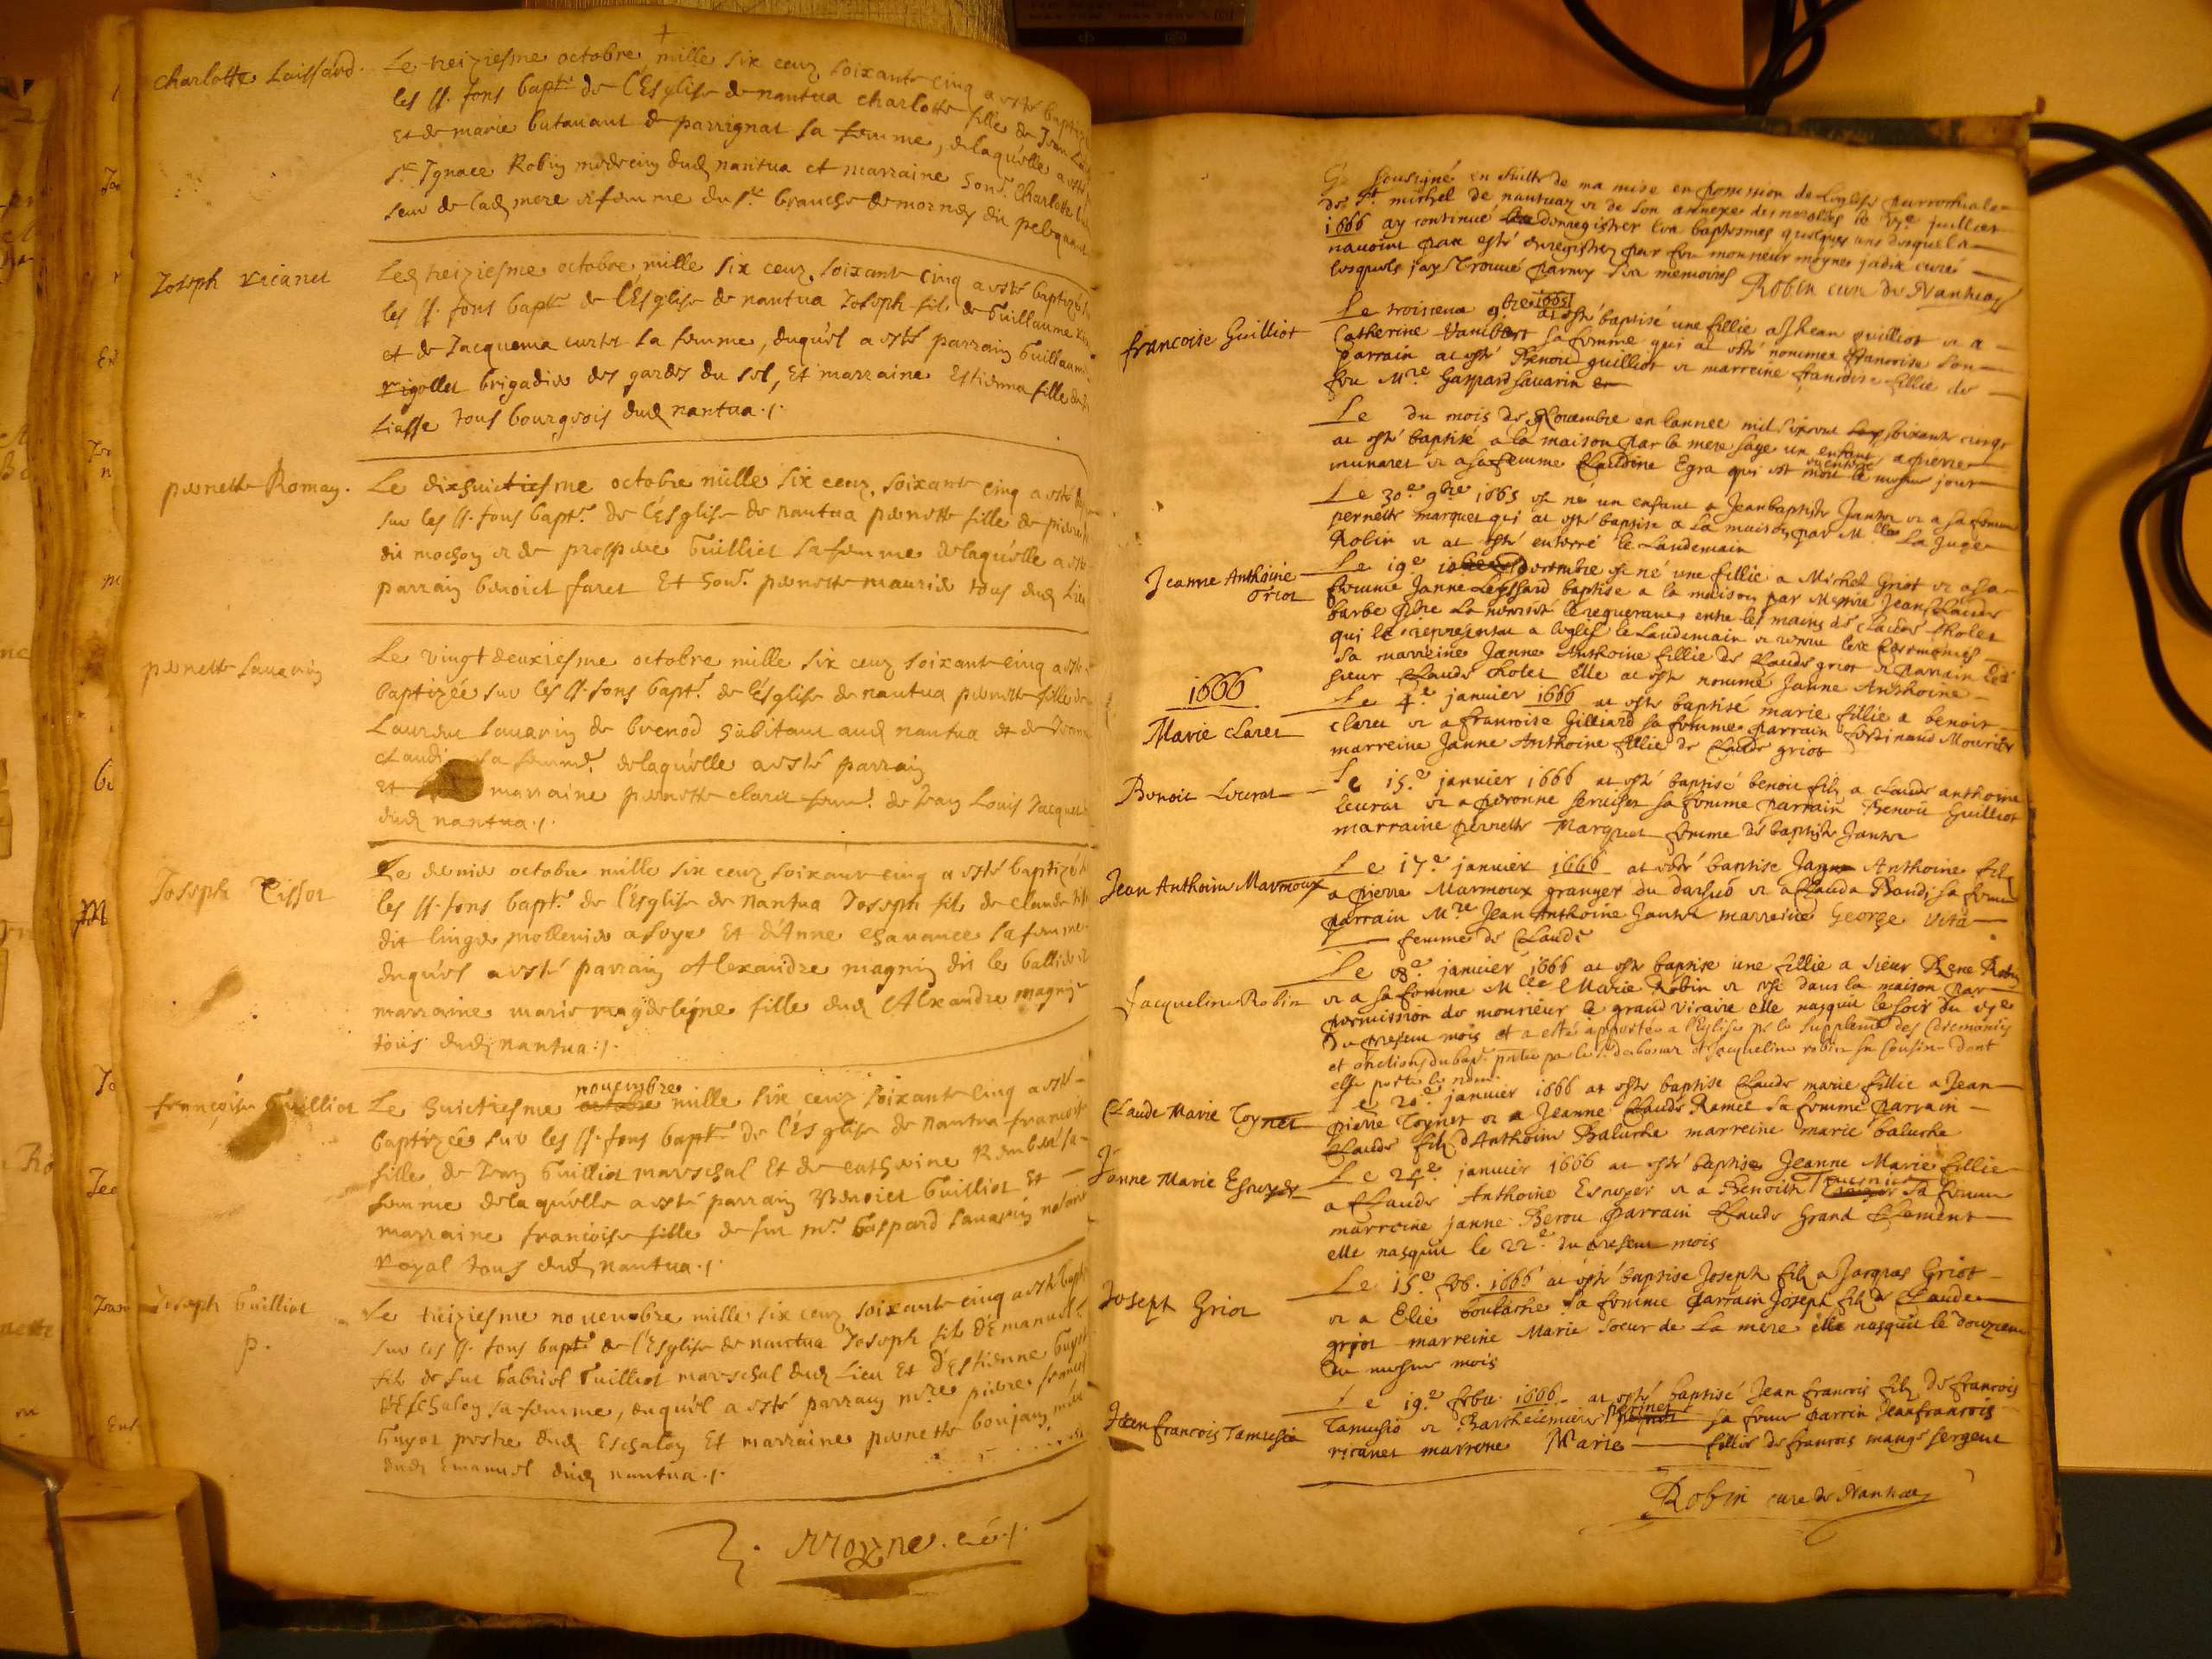 Charlotte Laissard.
Le treiziesme octobre mille six cens soixante cinq a esté baptizé
les ss. fons bapt. de l'Esglise de nantua charlotte fille de Jean
Et de marie butauant de parrignat sa femme, delaquelle a esté
sr. Ignace Robin medecin dud nantua et marraine hon. Charlotte
seur de lad mere et femme du sr. brauche de mornex dit
Joseph ricanet
Led treiziesme octobre mille six cens soixante cinq a esté baptizé
les ss. fons bapt. de l'Esglise de nantua Joseph fils de Guillaume
et de Jacquema curtet sa femme, duquel a esté parrain Guillaume
rigollet brigadier des gardes du sel, Et marraine Estienna fille
Liasse tous bourgeois dud nantua
pernette Romain.
Le dixhuictiesme octobre mille six cens soixante cinq a esté
sur les ss. fons bapt. de l'Esglise de nantua pernette fille de pierre
dit mochon et de prospere Guilliet sa femme delaquelle a esté
parrain benoict faret Et hon. pernette maurier tous dud lieu
pernette Sauarin
Le vingtdeuxiesme octobre mille six cens soixante cinq a esté
baptizée sur les ss. fons bapt. de l'Esglise de nantua pernette fille de
Laurent Sauarin de brenod habitant aud nantua et de
Claudi sa femme. delaquelle a esté parrain
et marraine pernette claret femme de Jean Louis Jacquet
dud nantua
Joseph Tissot
Le dernier octobre mille six cens soixante cinq a esté baptizé
les ss. fons bapt. de l'Esglise de nantua Joseph fils de claude
dit linger mollenier a soye Et d'Anne chauance sa femme
duquel a esté parrain Alexandre magnin dit le ballier et
marraine marie magdeleine fille dud Alexandre magnin
tous dud nantua
françoise Guilliot
Le huictiesme octobre nouembre mille six cens soixante cinq a esté
baptizée sur les ss. fons bapt. de l'Esglise de nantua francoise
fille de Jean Guilliot mareschal Et de catherine Rembert sa
femme delaquelle a esté parrain Benoict Guilliot Et
marraine francoise fille de feu mr. Gaspard Sauarin notaire
Royal tous dud nantua
Joseph Guilliot
p.
Le treiziesme nouembre mille six cens soixante cinq a esté bapt
sur les ss. fons bapt. de l'Esglise de nantua Joseph fils d'Emanuel
fils de feu Gabriel Guilliot mareschal dud Lieu Et d'Estienne
d'Eschalon sa femme, duquel a esté parrain mre pierre francois
Guyot prestre dud Eschalon Et marraine pernette bonjean mere
dud Emanuel dud nantua
Moyne. cé
Je soussigné en suitte de ma mise en possession de leglise parrochiale
de St. michel de nantuaz et de son annexe des nerolles le 6e juillet
1666 ay continué denregistrer les baptesmes quelques uns desquels
nauoint pas esté enregistrez par feu monsieur moyne jadix curé
lesquels jay trouué parmy ses memoires
Robin curé de Nantuaz
francoise Guilliot
Le troisieme 9bre 1665 at esté baptisé une fillie a Jean guilliot et a
Catherine Rambert sa femme qui at esté nommee francoise son
parrain at esté Benoit guilliot et marreine francoise fillie de
feu Mre Gaspard Sauarin
Le du mois de Nouembre en lannee mil sixcent soixante cinqs
at esté baptisé a la maison par la mere sage un enfant a pierre
munaret et a sa femme Claudine Egra qui est mort le mesme jour
Le 30e 9bre 1665 est né un enfant a Jeanbaptiste Jantet et a sa femme
pernette marquet qui at esté baptise a la maison par Mlle La Juge
Robin et at esté enterré le Landemain
Jeanne Anthoine
Griot
Le 19e decembre est né une fillie a Michel Griot et a sa
femme Janne Leyssard baptise a la maison par Messire Jean Claude
barbe pbre La necessité le requerant entre les mains de Claude Cholet
qui le representat a leglise le Landemain et receut les ceremonies
sa marreine Janne Anthoine fillie de Claude griot et parrain led
sieur Claude Cholet elle at esté nommé Janne Anthoine
1666
Marie Claret
Le 4e janvier 1666 at esté baptisé marie fillie a benoit
claret et a francoise Gilliard sa femme parrain ferdinand Mourier
marreine Janne Anthoine fillie de Claude griot
Benoit Leurat
Le 15e januier 1666 at esté baptisé benoit filz a claude anthoine
leurat et a peronne seruiset sa femme parrain Benoit Guilliot
marraine pernette Marquet femme de baptiste Jantet
Jean Anthoine Marmoux
Le 17e januier 1666 at esté baptise Janne Anthoine filz
a pierre Marmoux granger du darsuc et a Clauda Baudi sa femme
parrain Mre Jean Anthoine Jantet marreine George
femme de Claude
Jacqueline Robin
Le 18e januier 1666 at esté baptise une fillie a sieur Rene Robin
et a sa femme Mlle Marie Robin et ose dans la maison par
permission de monsieur le grand vicaire elle nasquit le soir du 6e
du present mois et a esté apportée a l'Eglise pr le supplement des ceremonies
et onctions du bap. portee par le sr. et Jacqueline robin sa cousine dont
elle porte le nom.
Claude Marie Toynet
Le 20e januier 1666 at esté baptise Claude marie fillie a Jean
pierre Toynet et a Jeanne Claude Ramel sa femme parrain
Claude filz d Anthoine Baluche marreine marie baluche
Janne Marie Escuyer
Le 24e januier 1666 at esté baptise Jeanne Marie fillie
a Claude Anthoine Escuyer et a Benoite sa femme
marreine janne Berou parrain Claude Grand Clement
elle nasquit le 22e du present mois
Joseph Griot
Le 15e feb. 1666 at esté baptise Joseph filz a Jacques Griot
et a Elie boutache sa femme parrain Joseph filz de Claude
griot marreine Marie soeur de la mere elle nasquit le douzieme
du mesme mois
Jean francois Tamusié
Le 19e febu. 1666 at esté baptisé Jean francois filz de francois
Tamusié et Barthelemiere perinet sa femme parrin Jeanfrancois
ricanet marreine Marie fillie de francois mange sergent
Robin curé de Nantuaz